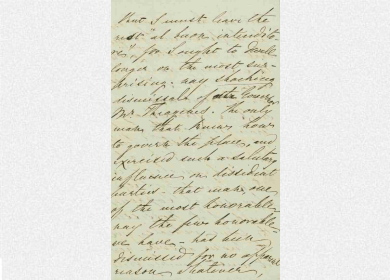 that I must leave the
rest "al buon intendito
re", for I ought to dwell
longer on the most sur-
prising, nay shocking
dismissal of our Govern
Mr. The only
man that knows how
to govern the place, and
exercised such a salutary
influence on dissident
parties - that man, one
of the most honorable,
nay the few honorable
we have - has been
dismissed for no apparent
reason whatever,